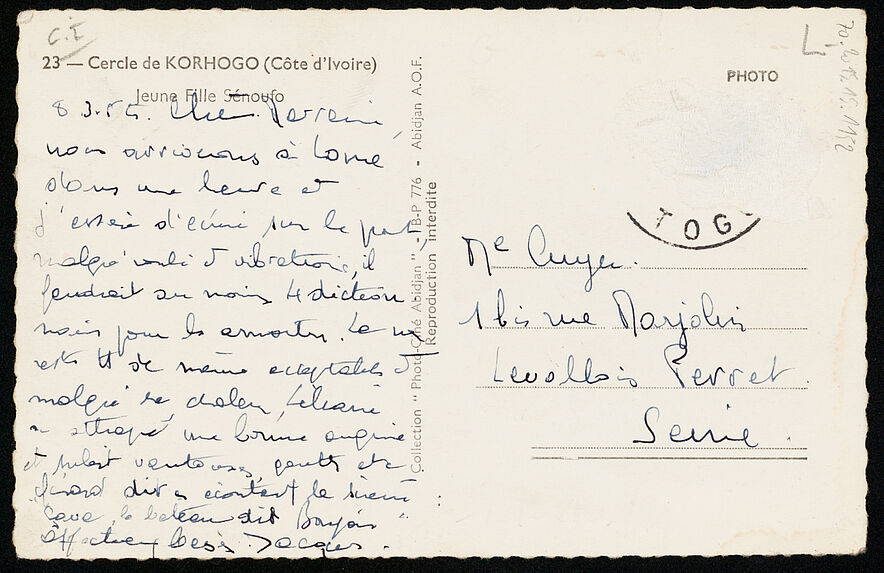 C.I
23 — Cercle de KORHOGO (Côte d'Ivoire)
Jeune Fille Sénoufo
8.3.55. Cher Parrain
nous arriverons à Lomé
dans une heure et
j'essaie d'écrire sur le pont,
malgré roulis et vibrations, il
faudrait au moins 4
mains pour les amortir. La
reste tt de même acceptable et
malgré la chaleur, Liliane
a attrapé une bonne angine
et subit ventouses, gouttes etc
Gérard dit en écoutant la sirène
" le bateau dit Bonjour "
Affectueux baisers. Jacques.
Collection " Photo-Ciné Abidjan " - B-P 776 - Abidjan A.O.F.
Reproduction interdite
PHOTO
TOG
Me Cuyer.
1 bis rue Marjolin
Levallois Perret.
Seine.